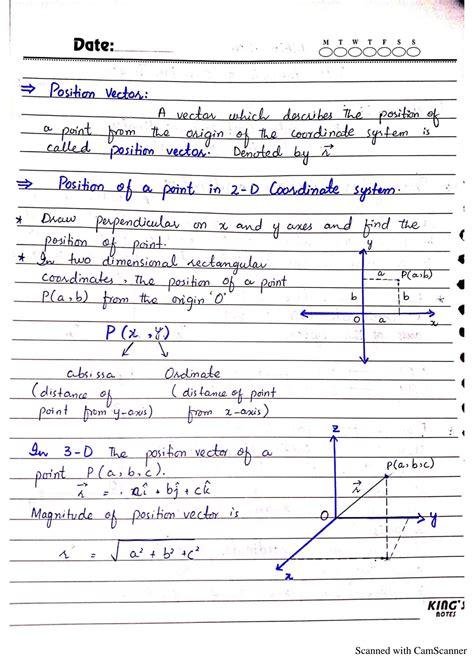 Date:
M T W T F S S
⇒ Position Vector:
A vector which describes the position of
a point from the origin of the coordinate system is
called position vector. Denoted by r⃗
⇒ Position of a point in 2-D Coordinate system.
* Draw perpendicular on x and y axes and find the
position of point.
* In two dimensional rectangular
coordinates, The position of a point
P(a,b) from the origin 'O'
y
a
P(a,b)
b
b
O
a
x
P (x, y)
absissa
Ordinate
(distance of
point from y-axis)
(distance of point
from x-axis)
In 3-D The position vector of a
point P(a,b,c).
r⃗ = aî + bĵ + ck̂
Magnitude of position vector is
r = √a² + b² + c²
z
P(a,b,c)
r⃗
O
y
x
KING'S
NOTES
Scanned with CamScanner